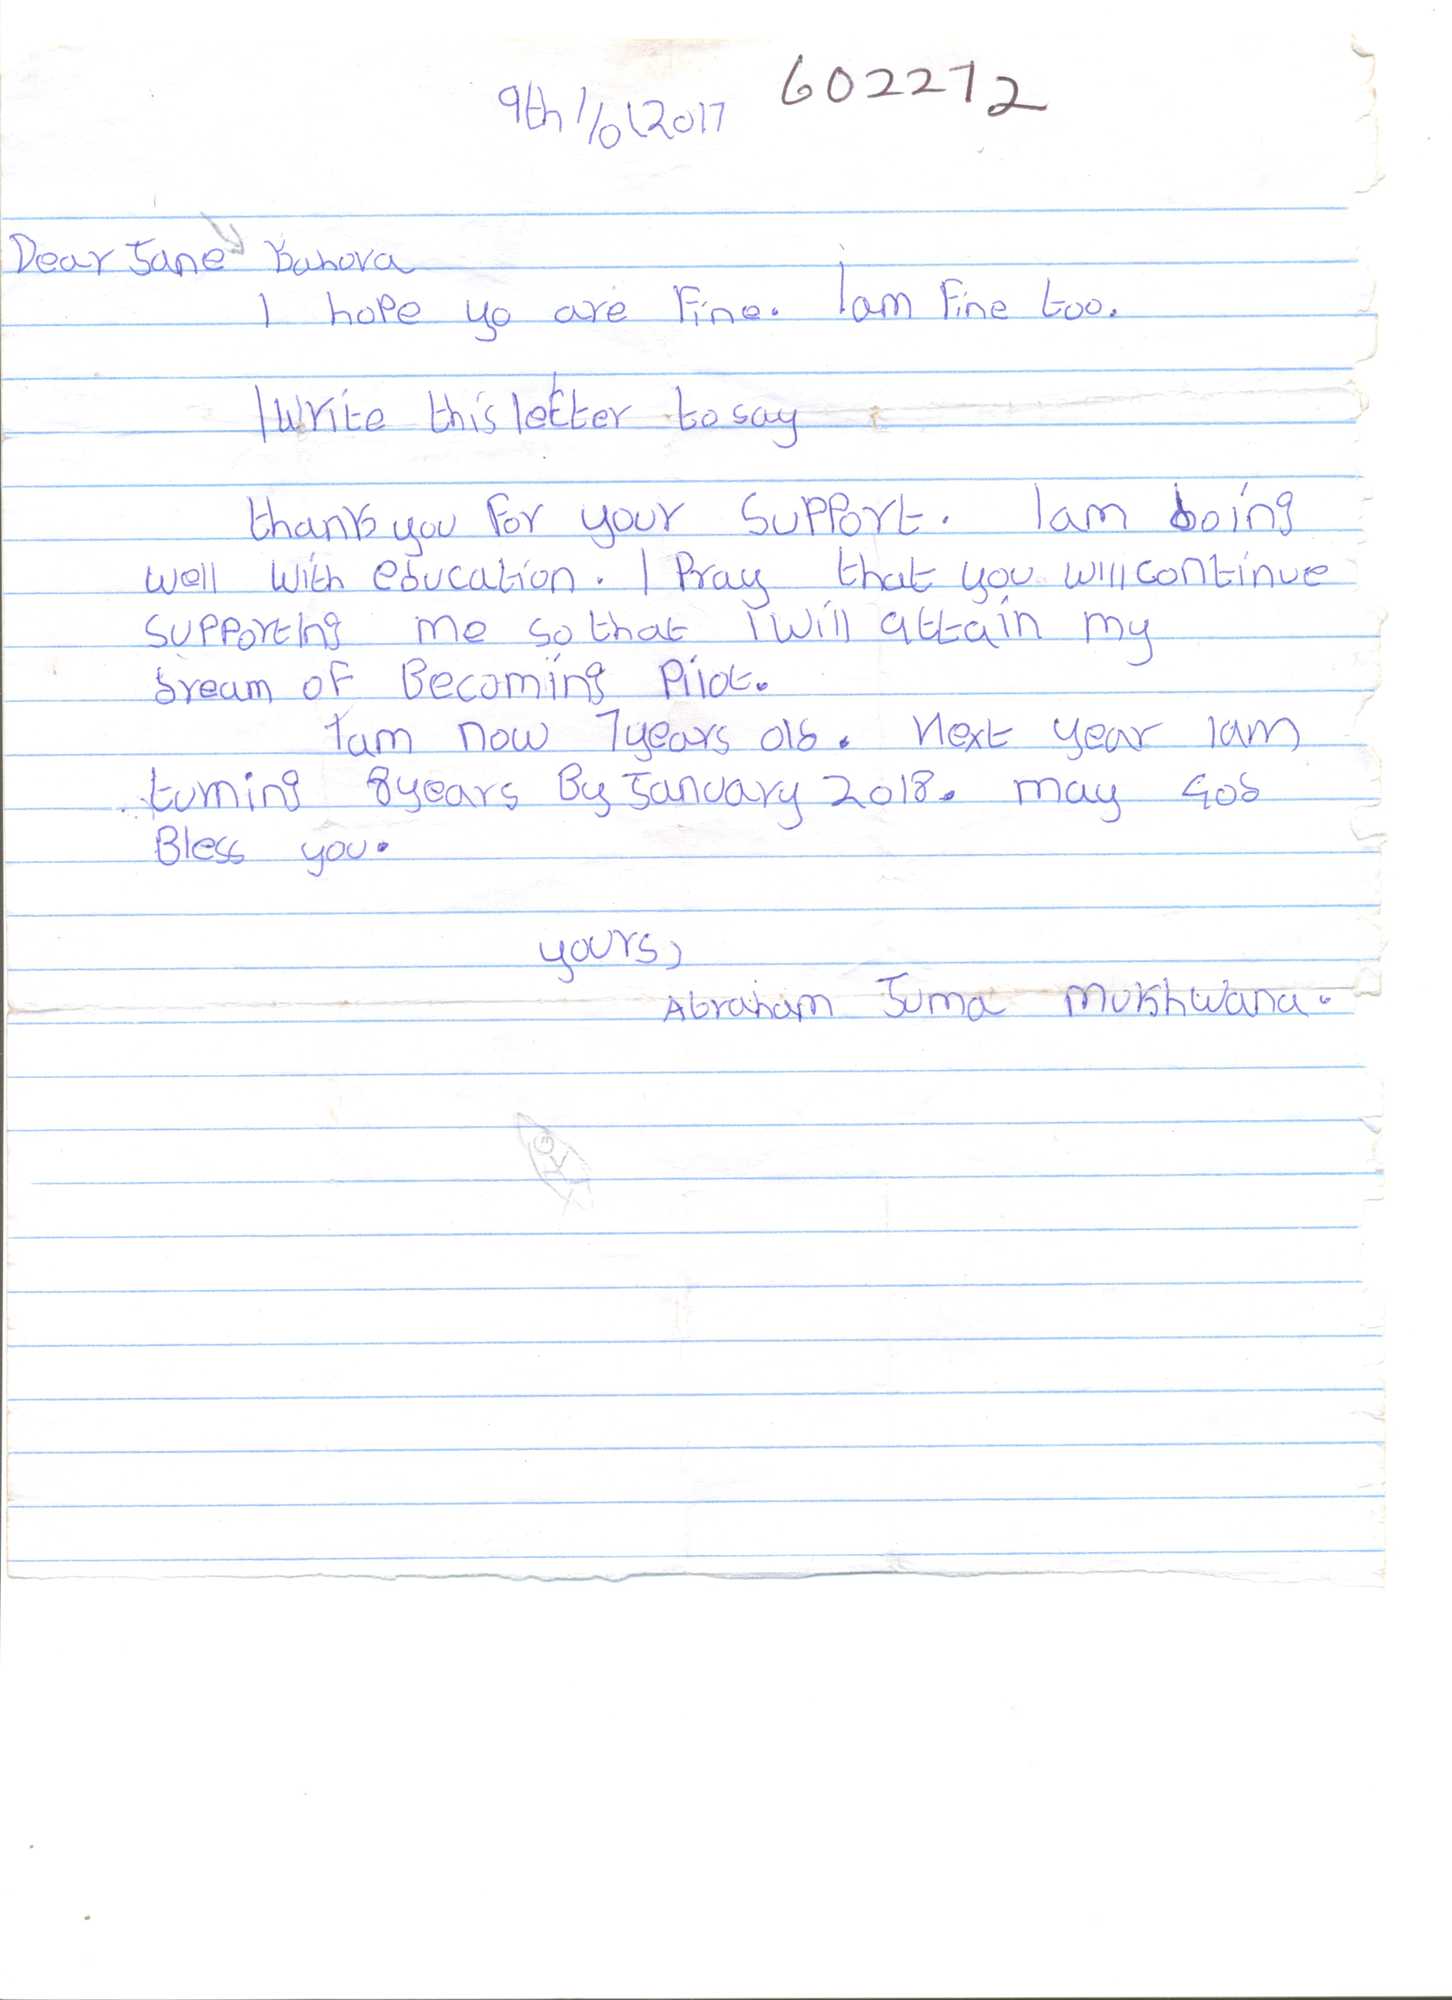 9th/10/2017 602272
Dear Jane
I hope yo are Fine. Iam Fine too.
I write this letter to say
thank you For your support. Iam doing
well with education. I Pray that you will continue
supporting me so that i will attain my
dream of Becoming Pilot.
Iam now 7years old. Next year Iam
turning 8years By January 2018. may God
Bless you.
yours,
Abraham Juma Mukhwana.